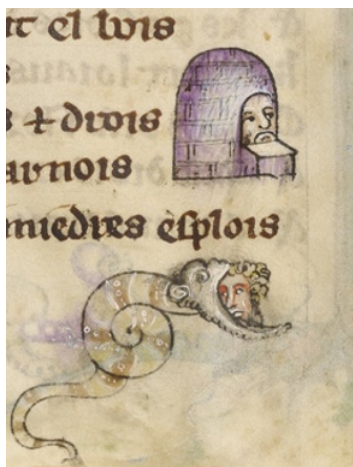 et el bois
s
s & drois
arnois
miedres esplois